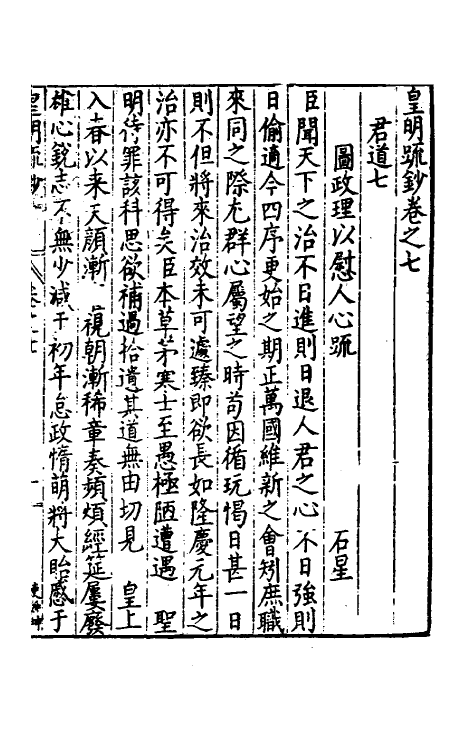 皇明疏鈔卷之七
君道七
圖政理以慰人心疏 石星
臣聞天下之治不日進則日退人君之心不日強則
日偷適今四序更始之期正萬國維新之會矧庶職
來同之際尤群心屬望之時苟因循玩愒日甚一日
則不但將來治效未可遽臻即欲長如隆慶元年之
治亦不可得矣臣本草茅寒士至愚極陋遭遇 聖
明待罪該科思欲補過拾遺其道無由切見 皇上
入春以來天顏漸 視朝漸稀章奏頻煩經筵屢廢
雄心銳志不無少減于初年怠政惰萌將大貽慼于
皇明疏鈔 卷之七 一